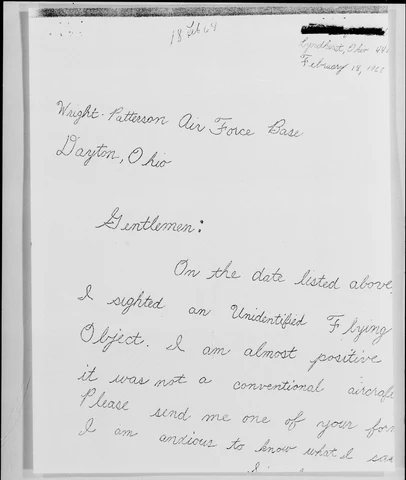 18 Feb 64
Lyndhurst, Ohio 44
February 18, 196
Wright-Patterson Air Force Base
Dayton, Ohio
Gentlemen:
On the date listed above
I sighted an Unidentified Flying
Object. I am almost positive
it was not a conventional aircraf
Please send me one of your for
I am anxious to know what I saw